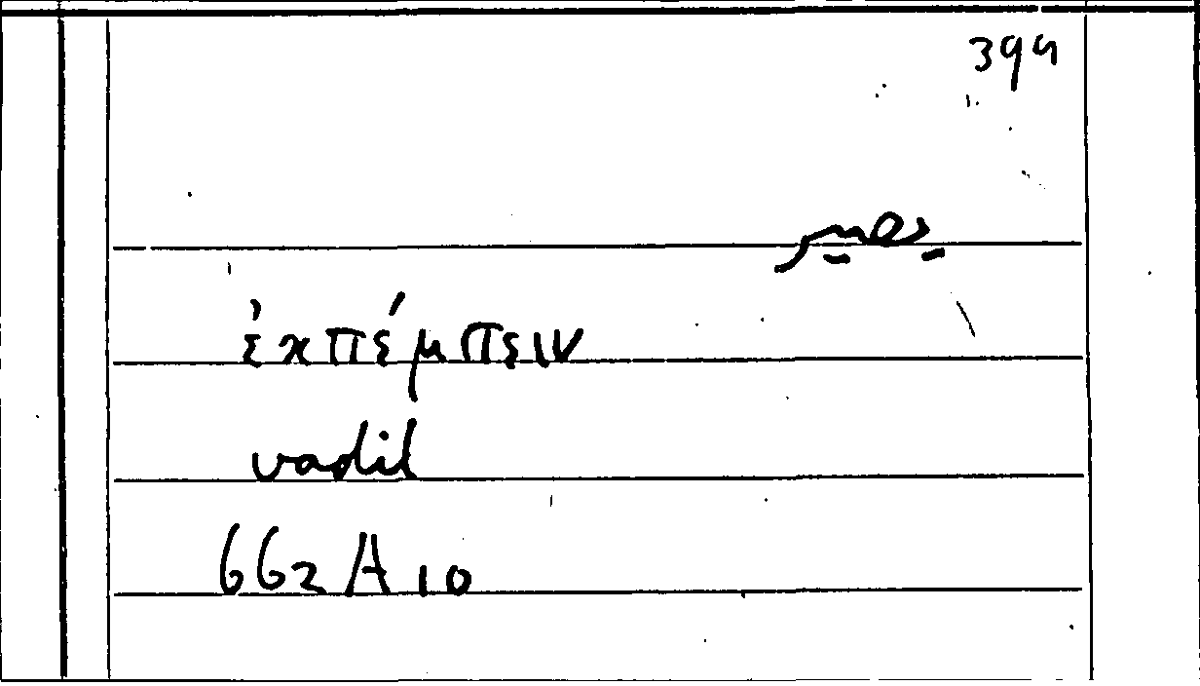 يصير
ἐκπέμπειν
vadit
662 A 10